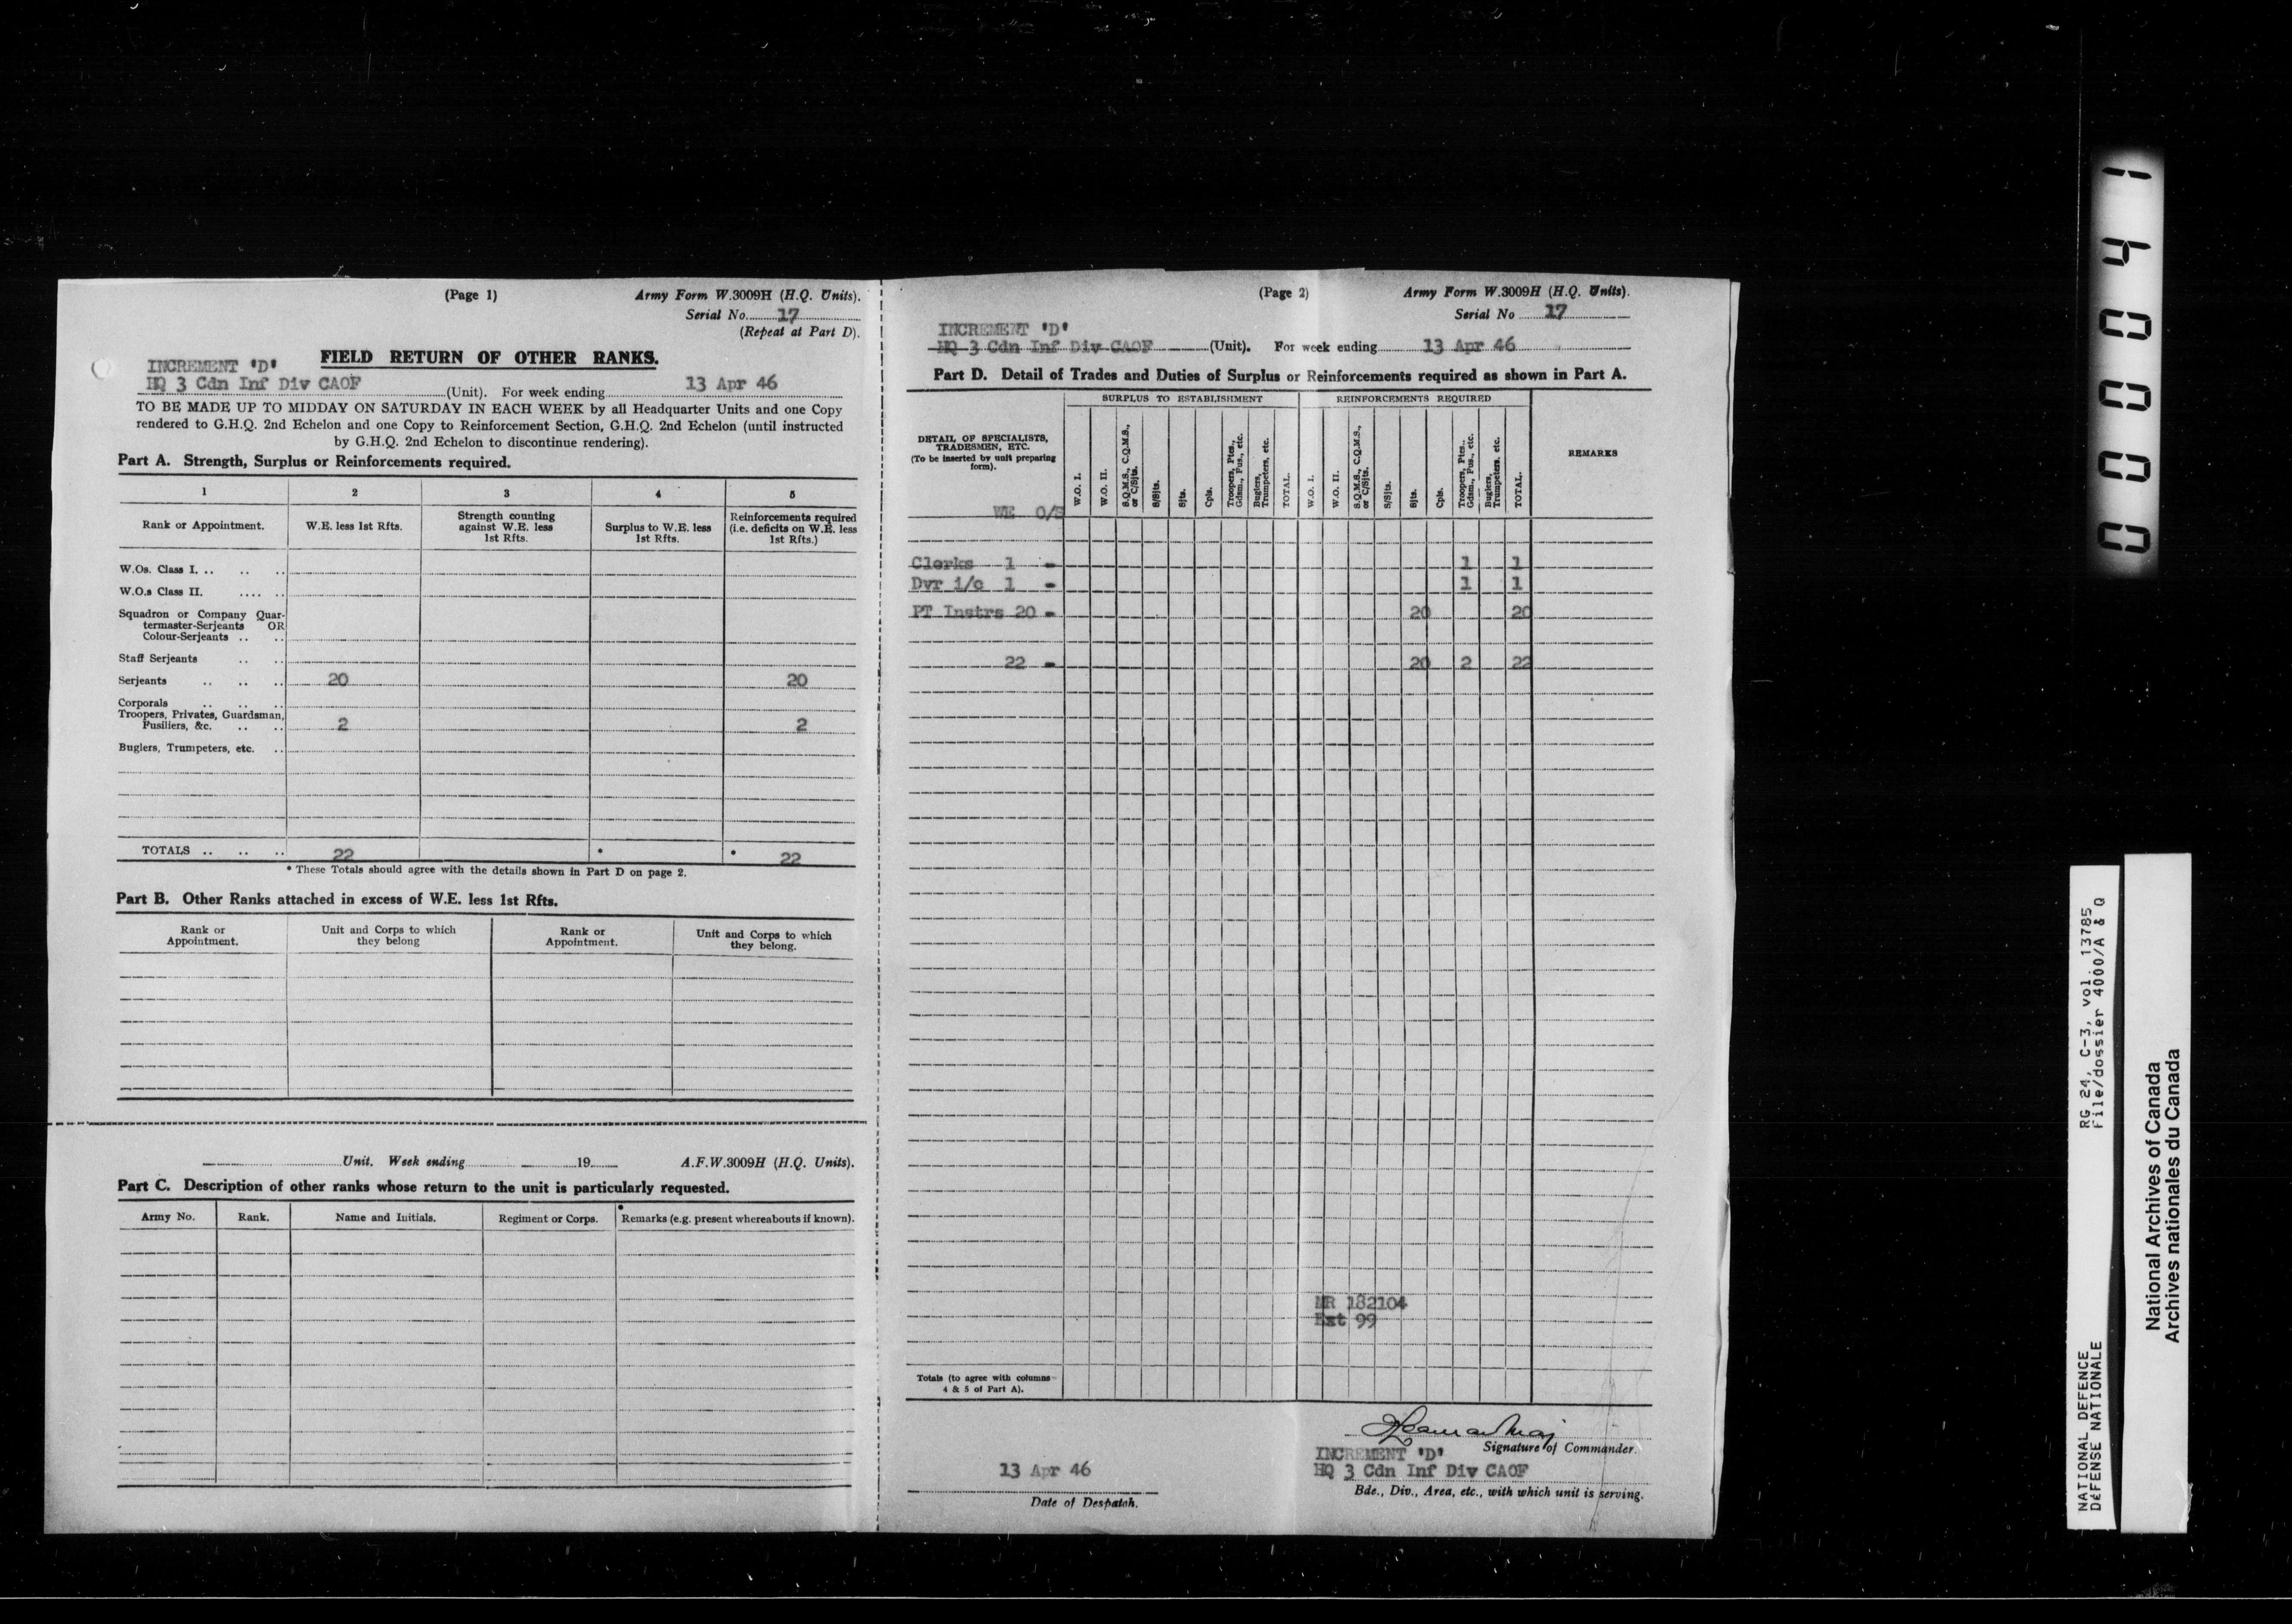 (Page 1) Army Form W.3009H (H.Q. Units).
Serial No. 17
(Repeat at Part D).
FIELD RETURN OF OTHER RANKS.
INCREMENT 'D'
HQ 3 Cdn Inf Div CAOF (Unit). For week ending 13 Apr 46
TO BE MADE UP TO MIDDAY ON SATURDAY IN EACH WEEK by all Headquarter Units and one Copy
rendered to G.H.Q. 2nd Echelon and one Copy to Reinforcement Section, G.H.Q. 2nd Echelon (until instructed
by G.H.Q. 2nd Echelon to discontinue rendering).
Part A. Strength, Surplus or Reinforcements required.
1 2 3 4 5
Rank or Appointment. W.E. less 1st Rfts. Strength counting against W.E. less 1st Rfts. Surplus to W.E. less 1st Rfts. Reinforcements required (i.e. deficits on W.E. less 1st Rfts.)
W.Os. Class I. .. .. ..
W.O.s Class II. .... ..
Squadron or Company Quar-
termaster-Serjeants OR
Colour-Serjeants .. ..
Staff Serjeants .. ..
Serjeants .. .. .. 20 20
Corporals .. .. ..
Troopers, Privates, Guardsman,
Fusiliers, &c. .. .. 2 2
Buglers, Trumpeters, etc. ..
TOTALS .. .. .. 22 * * 22
* These Totals should agree with the details shown in Part D on page 2.
Part B. Other Ranks attached in excess of W.E. less 1st Rfts.
Rank or Appointment. Unit and Corps to which they belong Rank or Appointment. Unit and Corps to which they belong.
Unit. Week ending 19 A.F.W.3009H (H.Q. Units).
Part C. Description of other ranks whose return to the unit is particularly requested.
Army No. Rank. Name and Initials. Regiment or Corps. Remarks (e.g. present whereabouts if known).
(Page 2) Army Form W.3009H (H.Q. Units).
Serial No 17
INCREMENT 'D'
HQ 3 Cdn Inf Div CAOF (Unit). For week ending 13 Apr 46
Part D. Detail of Trades and Duties of Surplus or Reinforcements required as shown in Part A.
SURPLUS TO ESTABLISHMENT REINFORCEMENTS REQUIRED
DETAIL OF SPECIALISTS,
TRADESMEN, ETC.
(To be inserted by unit preparing
form).
W.O. I. W.O. II. S.Q.M.S., C.Q.M.S., or C/Sjts. S/Sjts. Sjts. Cpls. Troopers, Ptes., Gdsm., Fus., etc. Buglers, Trumpeters, etc. TOTAL. W.O. I. W.O. II. S.Q.M.S., C.Q.M.S., or C/Sjts. S/Sjts. Sjts. Cpls. Troopers, Ptes., Gdsm., Fus., etc. Buglers, Trumpeters, etc. TOTAL. REMARKS
WE O/S
Clerks 1 - 1 1
Dvr i/c 1 - 1 1
PT Instrs 20 - 20 20
22 - 20 2 22
MR 182104
Ext 99
Totals (to agree with columns
4 & 5 of Part A).
Signature of Commander.
INCREMENT 'D'
13 Apr 46 HQ 3 Cdn Inf Div CAOF
Date of Despatch. Bde., Div., Area, etc., with which unit is serving.
000041
RG 24, C-3, vol. 13785
File/dossier 4000/A & Q
NATIONAL DEFENCE
DÉFENSE NATIONALE
National Archives of Canada
Archives nationales du Canada